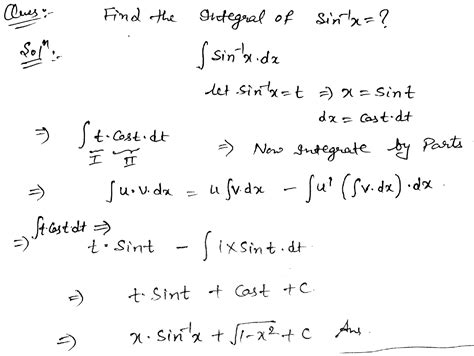 Ques:- Find the Integral of Sin⁻¹x = ?
Solⁿ:- ∫ Sin⁻¹x · dx
let sin⁻¹x = t ⇒ x = Sint
dx = cost · dt
⇒ ∫ t · Cost · dt ⇒ Now Integrate by Parts
I II
⇒ ∫ u · v · dx = u ∫ v · dx − ∫ u' (∫ v · dx) · dx
∫ t · Cost dt ⇒
⇒ t · Sint − ∫ 1 × Sint · dt
⇒ t · Sint + Cost + C
⇒ x · Sin⁻¹x + √1−x² + C Ans.